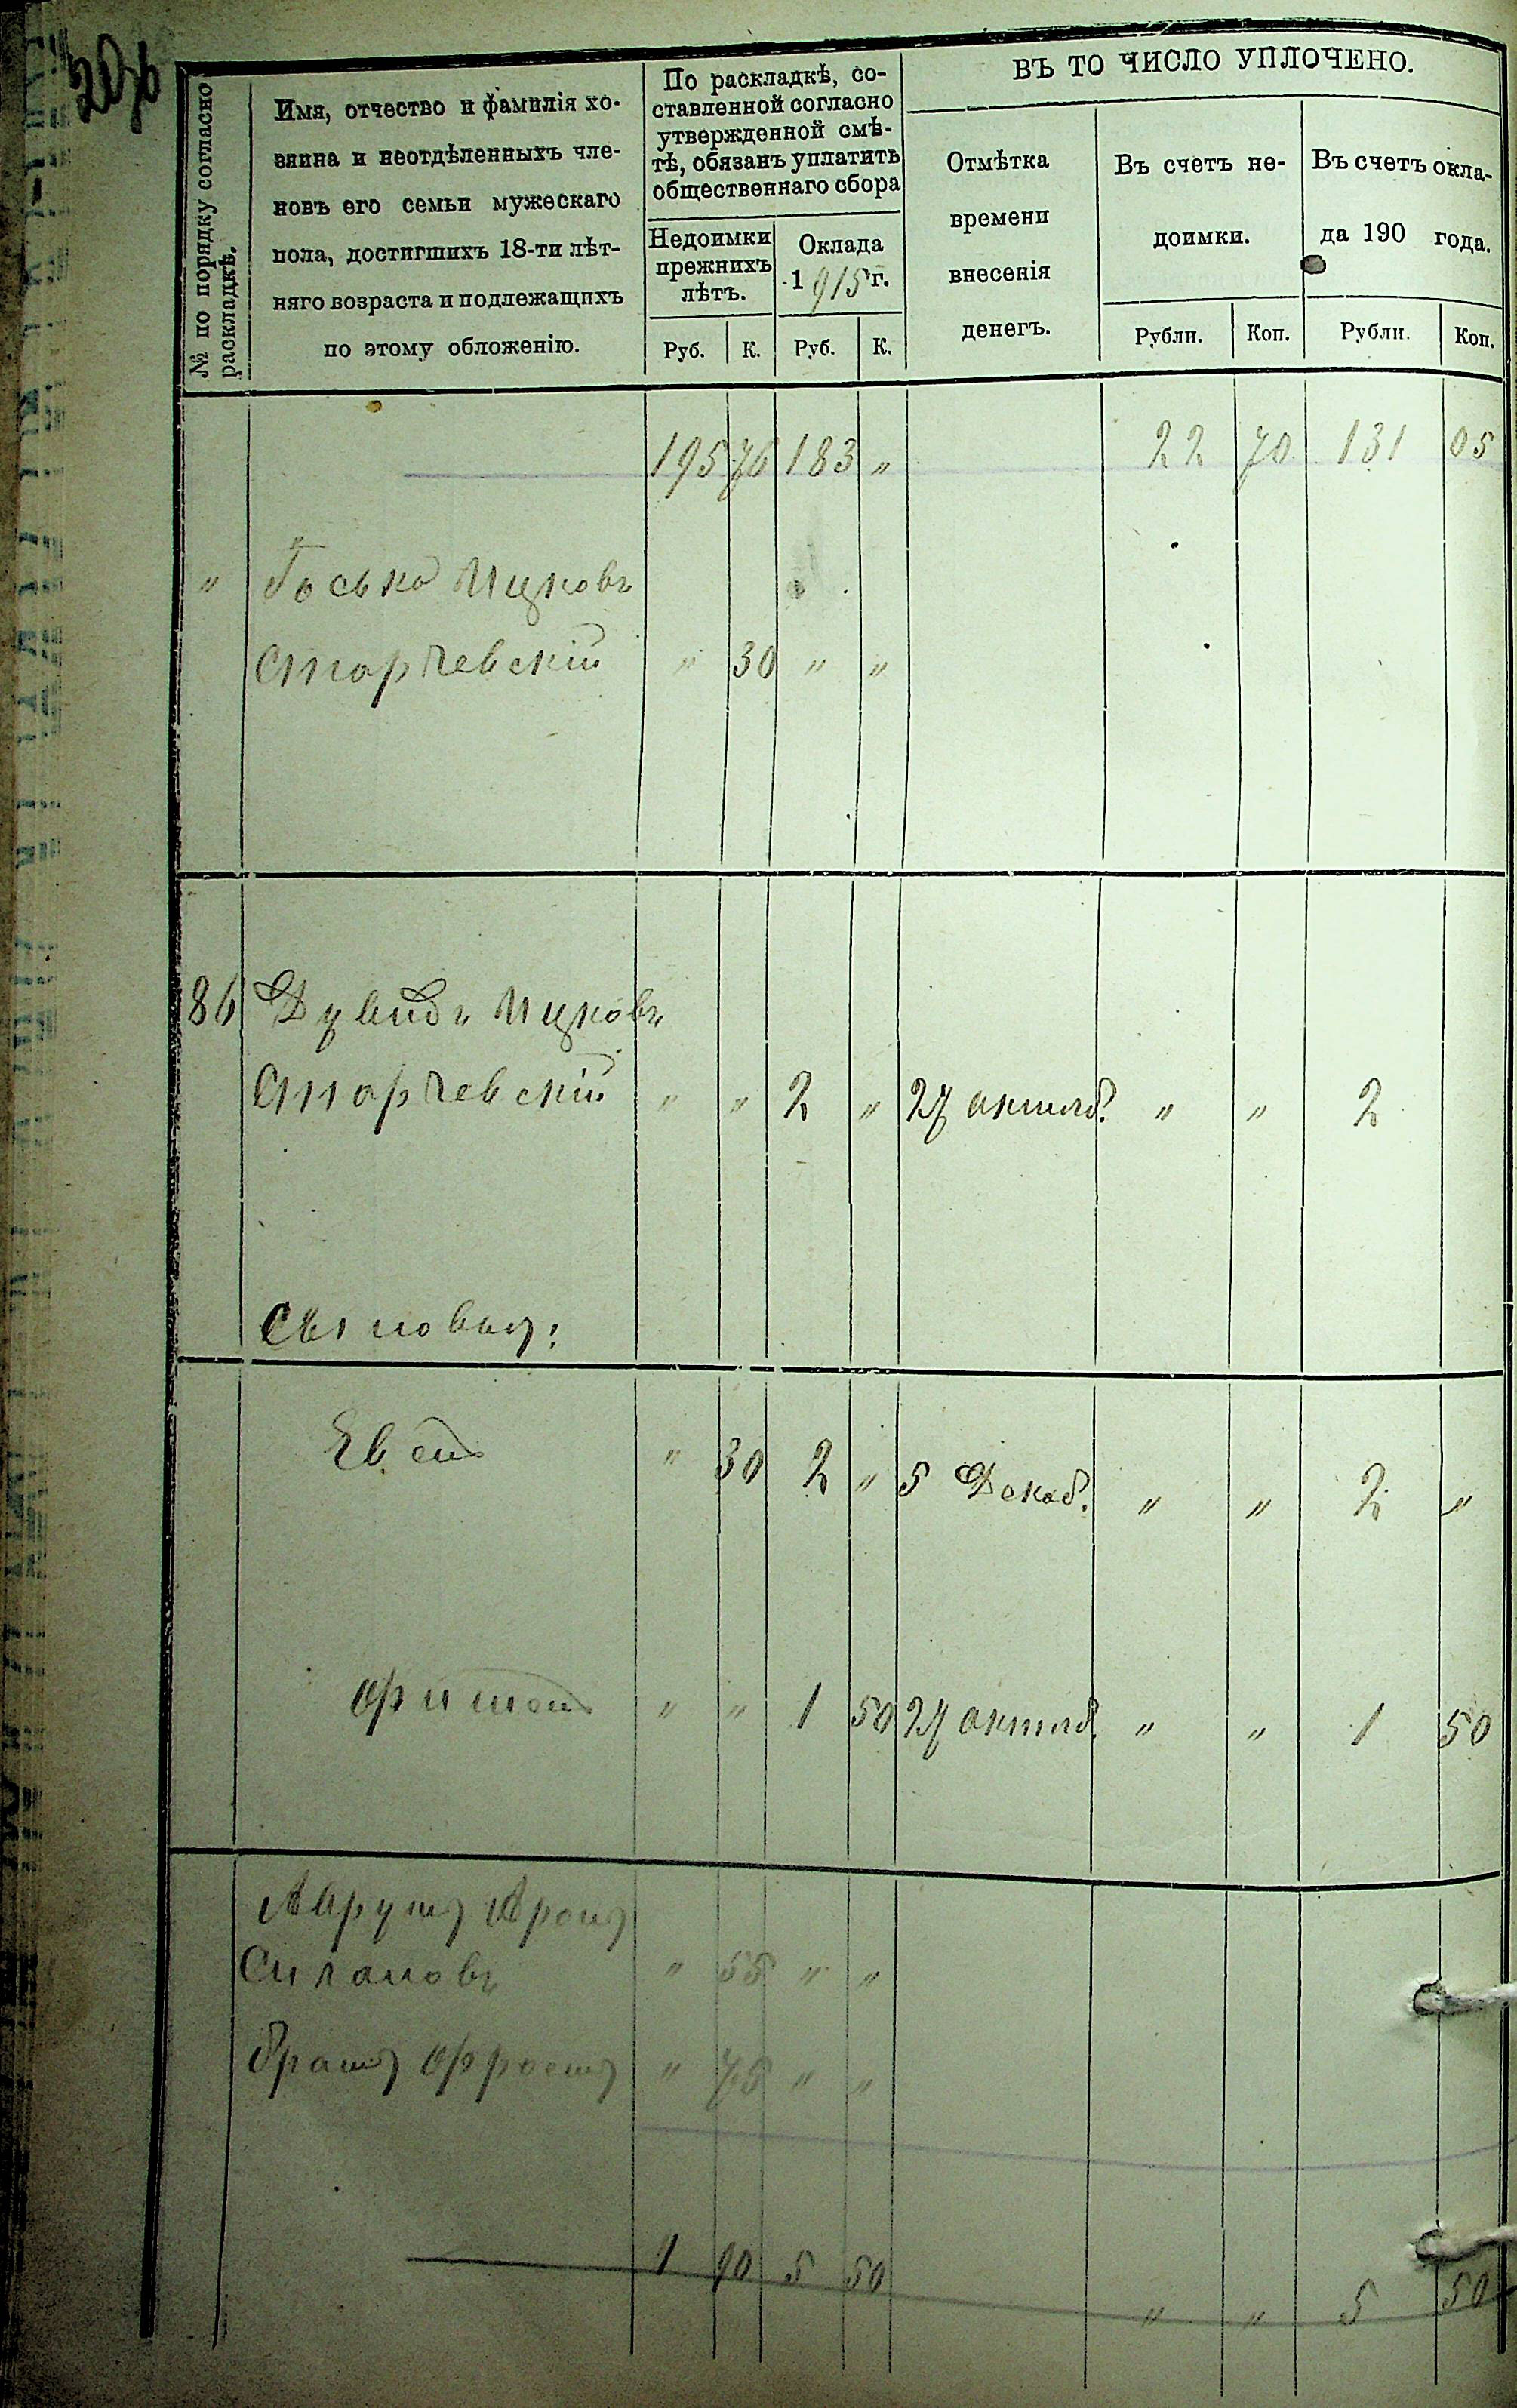 № по порядку согласно
раскладкѣ.
Имя, отчество и фамилія хо-
зяина и неотдѣленныхъ чле-
новъ его семьи мужескаго
пола, достигшихъ 18-ти лѣт-
няго возраста и подлежащихъ
по этому обложенію.
По раскладкѣ, со-
ставленной согласно
утвержденной смѣ-
тѣ, обязанъ уплатить
общественнаго сбора
Недоимки
прежнихъ
лѣтъ.
Оклада
1915 г.
Руб. К. Руб. К.
ВЪ ТО ЧИСЛО УПЛОЧЕНО.
Отмѣтка
времени
внесенія
денегъ.
Въ счетъ не-
доимки.
Въ счетъ окла-
да 190 года.
Рубли. Коп. Рубли. Коп.
195 76 183 " 22 70 131 05
" Ицковъ
Старчевскій " 30 " "
86 Ицковъ
Старчевскій " " 2 " 27 октяб. " " 2
Сыновья:
" 30 2 " 5 Декаб. " " 2 "
" " 1 50 27 октяб. " " 1 50
" 55 " "
братъ " 75 " "
1 90 5 50 " " 5 50